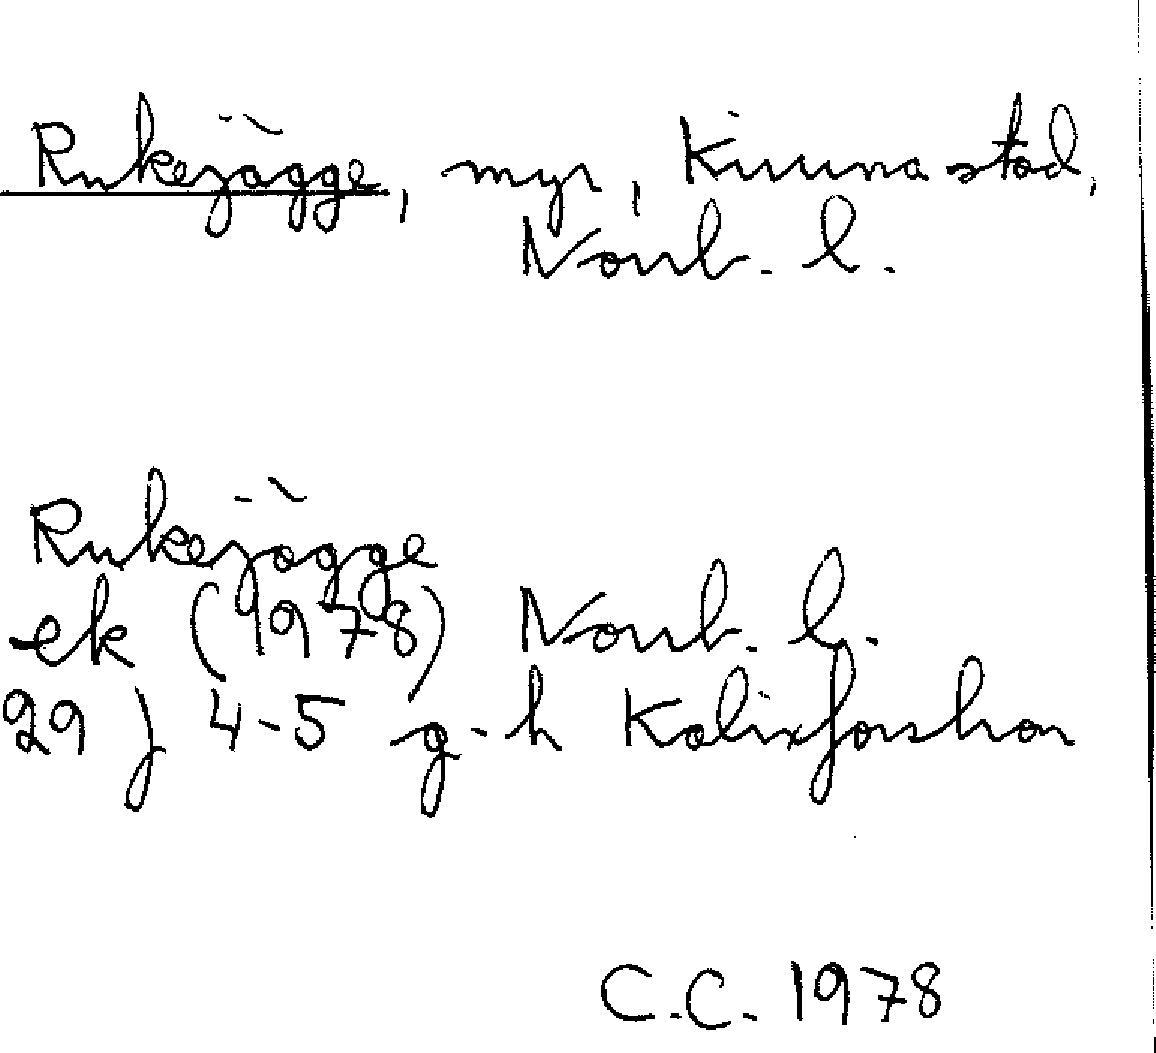 Rukejägge, myr, Kiruna stad,
Norrb. l.
Rukejägge
ek (1978) Norrb. l.
29 J 4-5 g-h Kalixforshon
C.C. 1978